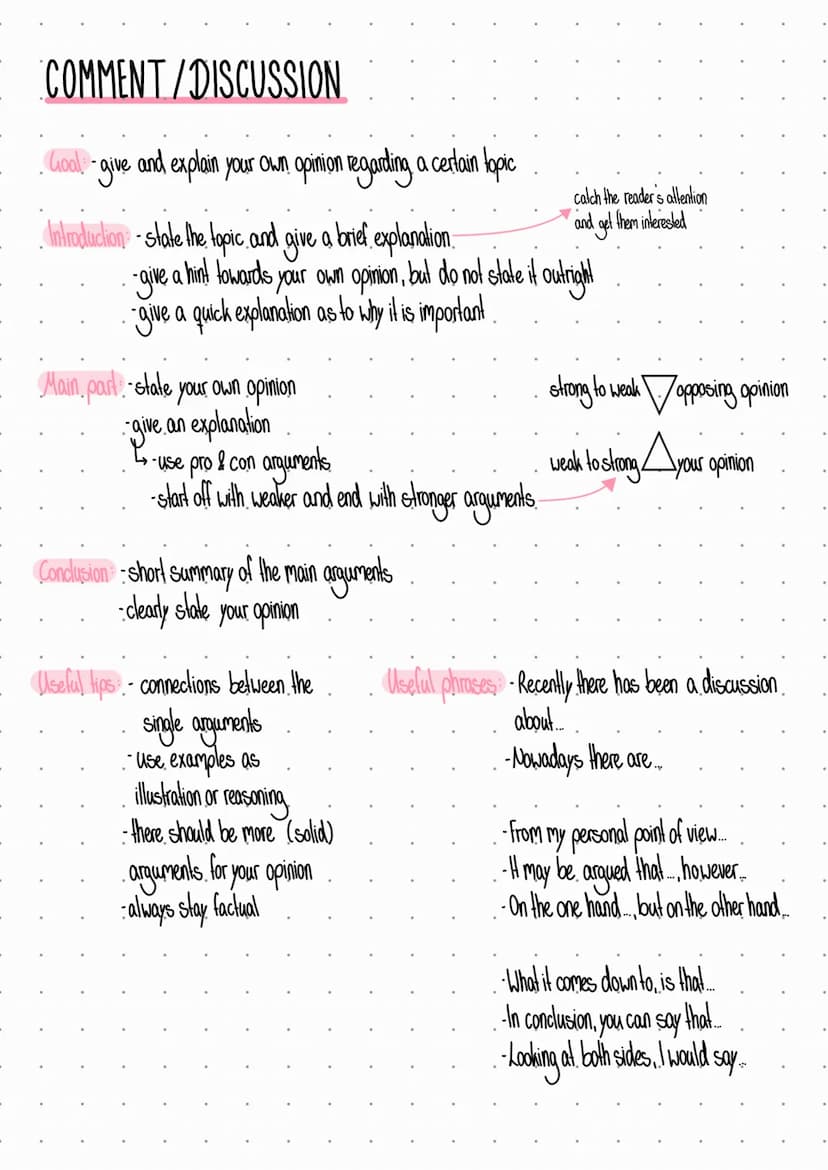 COMMENT/DISCUSSION
Goal: - give and explain your own opinion regarding a certain topic
catch the reader's attention
and get them interested
Introduction: - state the topic and give a brief explanation
- give a hint towards your own opinion, but do not state it outright
- give a quick explanation as to why it is important
Main part: - state your own opinion
- give an explanation
↳ - use pro & con arguments
- start off with weaker and end with stronger arguments
strong to weak ▽ opposing opinion
weak to strong △ your opinion
Conclusion: - short summary of the main arguments
- clearly state your opinion
Useful tips: - connections between the
single arguments
- use examples as
illustration or reasoning
- there should be more (solid)
arguments for your opinion
- always stay factual
Useful phrases: - Recently there has been a discussion
about...
- Nowadays there are...
- From my personal point of view...
- It may be argued that..., however...
- On the one hand..., but on the other hand...
- What it comes down to, is that...
- In conclusion, you can say that...
- Looking at both sides, I would say...